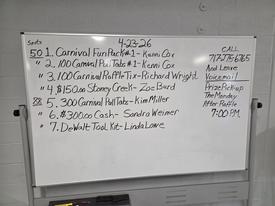 Seats 4-23-26
50 1. Carnival Fun Pack #1 - Kenni Cox
" 2. 100 Carnival Pull Tabs #1 - Kenni Cox
" 3. 100 Carnival Raffle Tix - Richard Wright
" 4. $150.00 Stoney Creek - Zoe Bard
5. 300 Carnival Pull Tabs - Kim Miller
" 6. $300.00 Cash - Sandra Weimer
" 7. DeWalt Tool Kit - Linda Lowe
CALL
717-275-6765
And Leave
Voicemail
Prize Pick-up
The Monday
After Raffle
7:00 P.M.